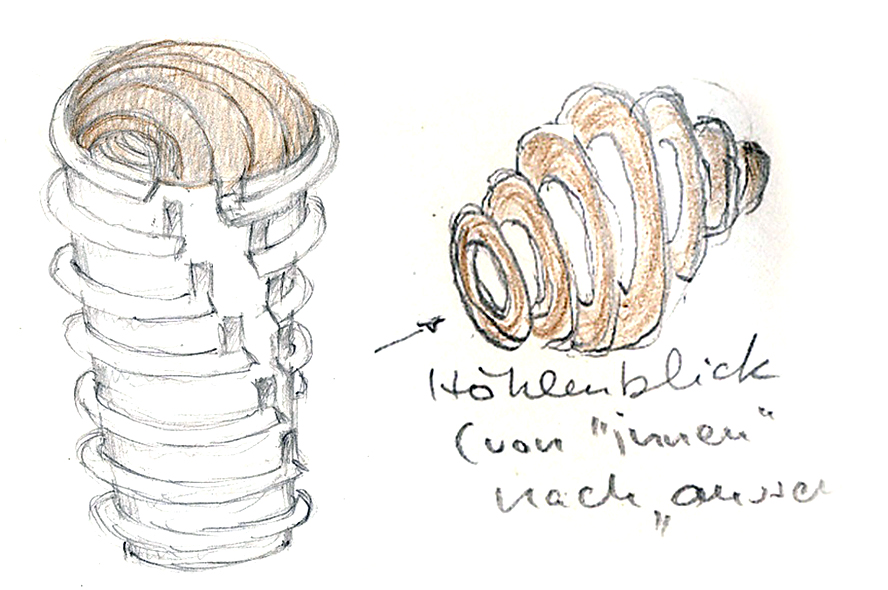 Höhlenblick
(von "innen"
nach „aussen